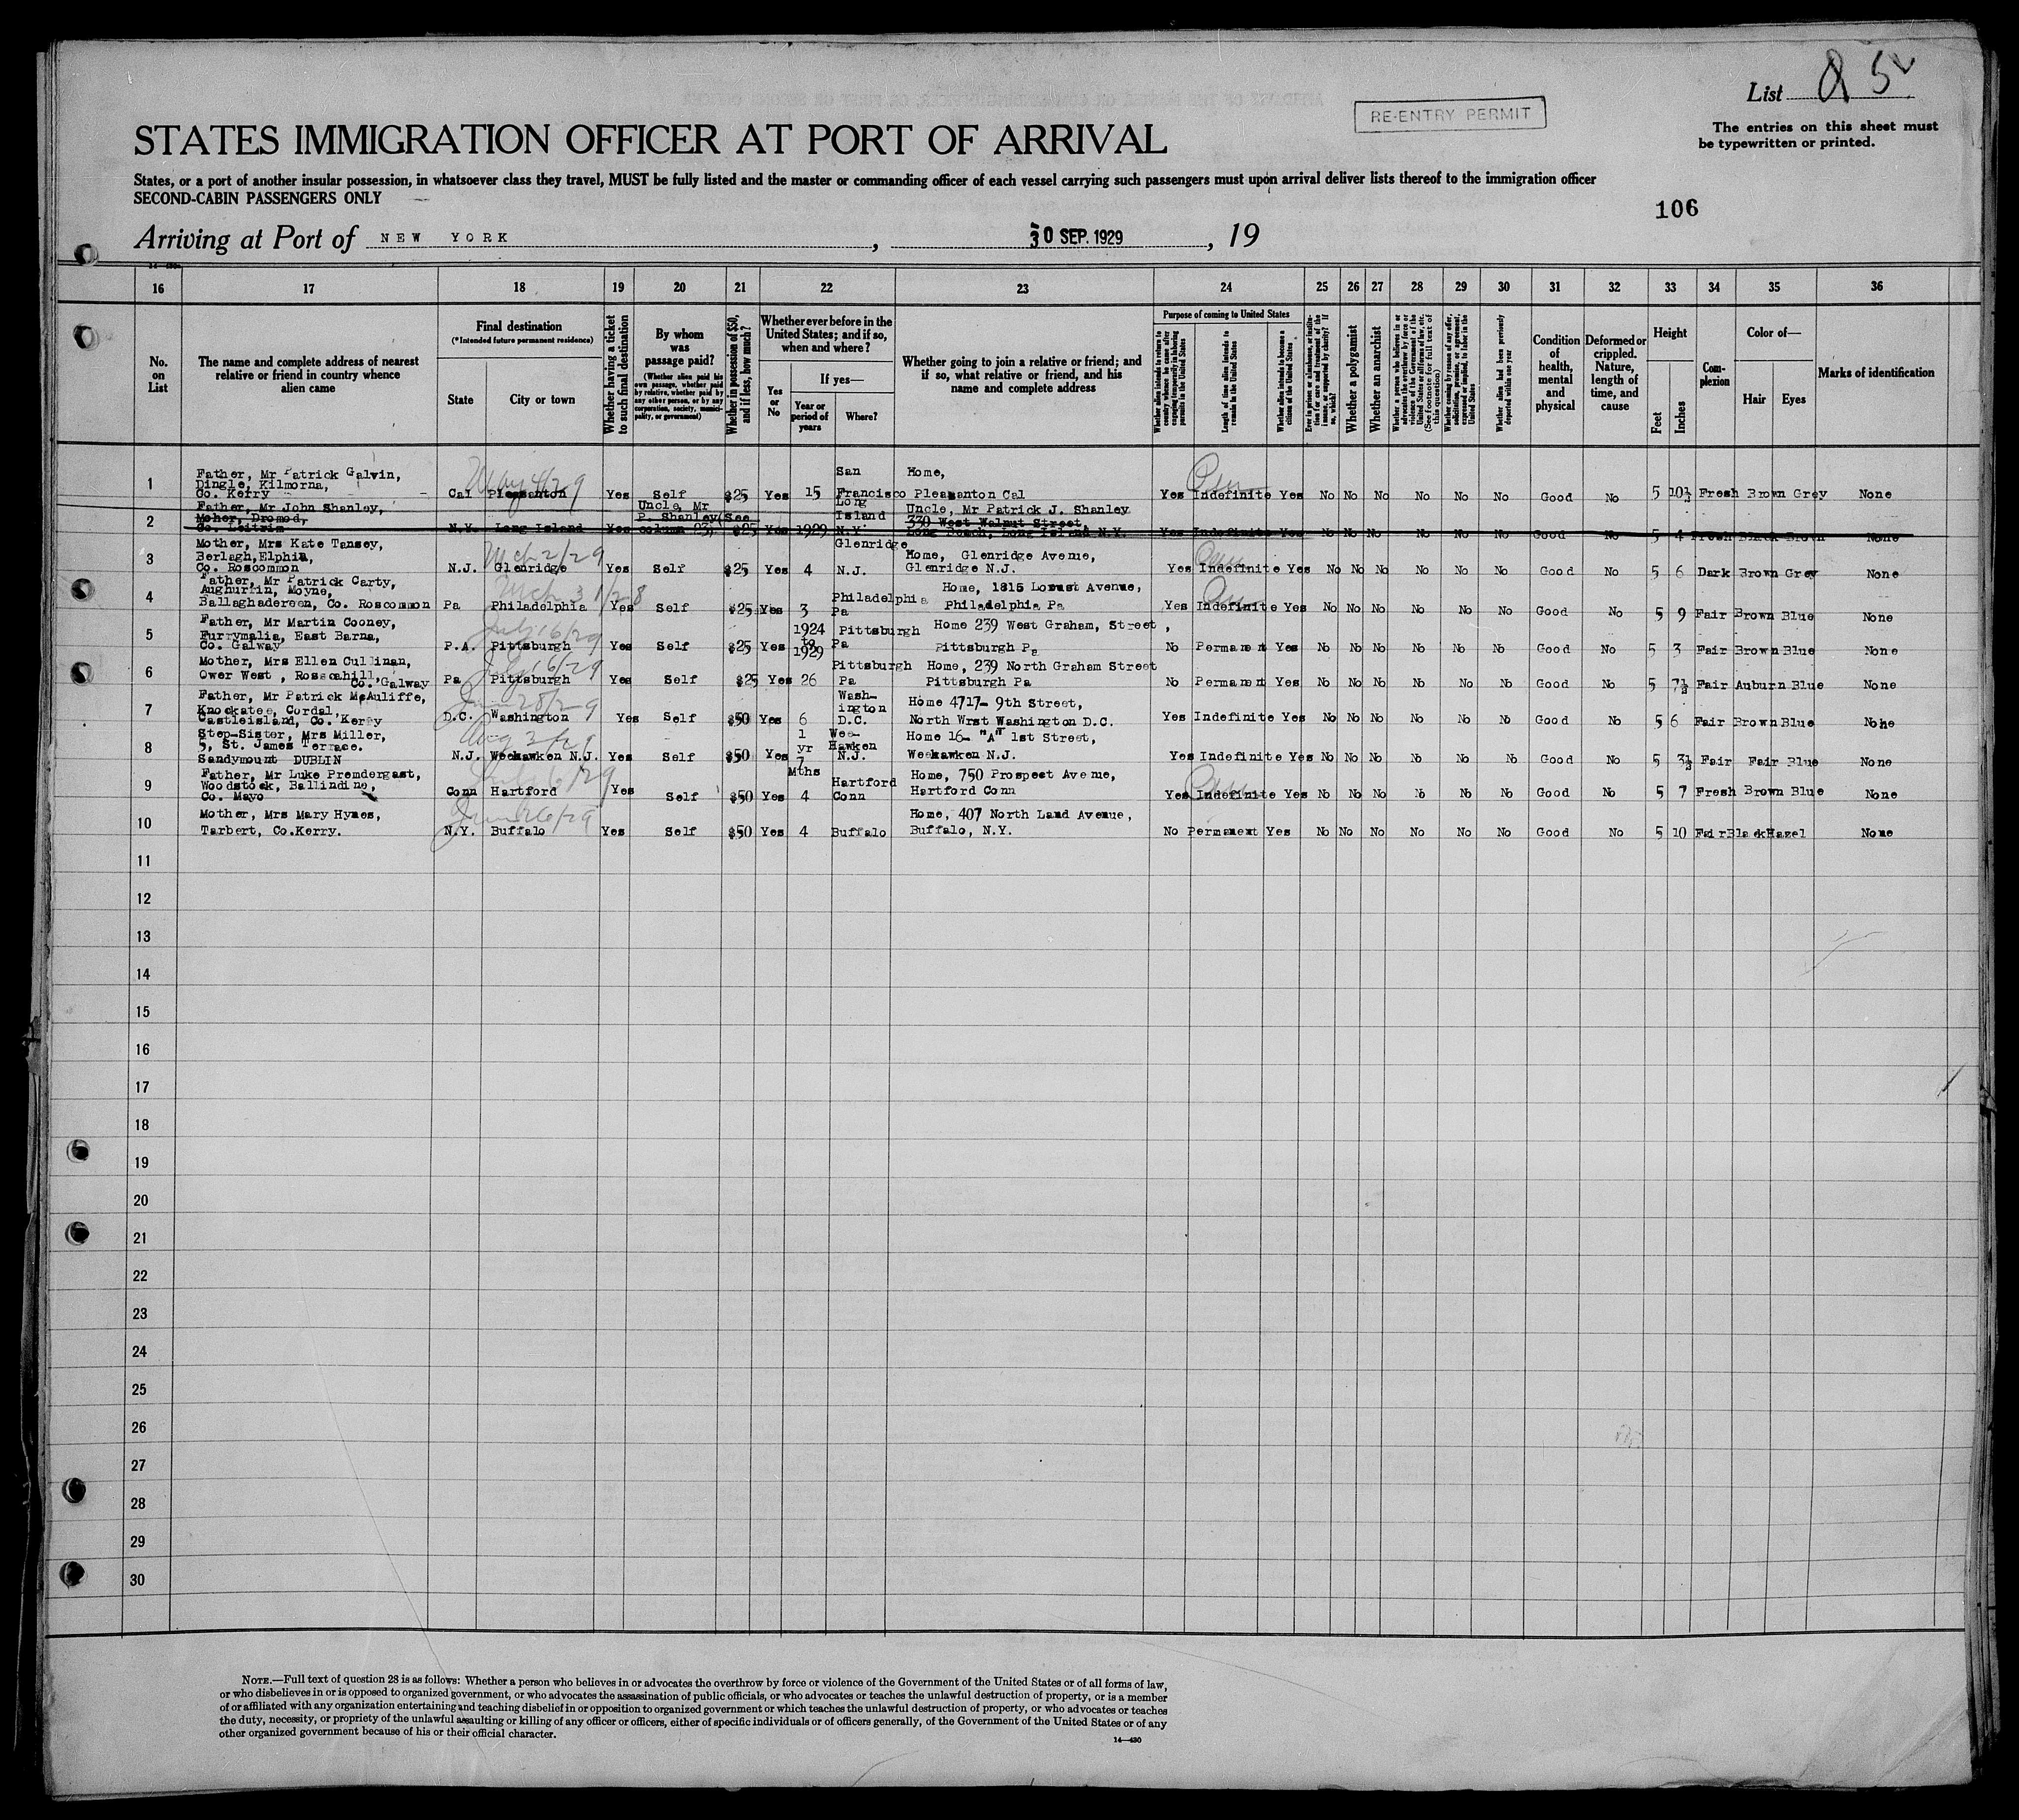 List 85
RE-ENTRY PERMIT
The entries on this sheet must
be typewritten or printed.
STATES IMMIGRATION OFFICER AT PORT OF ARRIVAL
States, or a port of another insular possession, in whatsoever class they travel, MUST be fully listed and the master or commanding officer of each vessel carrying such passengers must upon arrival deliver lists thereof to the immigration officer
SECOND-CABIN PASSENGERS ONLY
106
Arriving at Port of NEW YORK, 30 SEP. 1929, 19
16 17 18 19 20 21 22 23 24 25 26 27 28 29 30 31 32 33 34 35 36
No.
on
List
The name and complete address of nearest
relative or friend in country whence
alien came
Final destination
(*Intended future permanent residence)
State
City or town
Whether having a ticket
to such final destination
By whom
was
passage paid?
(Whether alien paid his
own passage, whether paid
by relative, whether paid by
any other person, or by any
corporation, society, munici-
pality, or government)
Whether in possession of $50,
and if less, how much?
Whether ever before in the
United States; and if so,
when and where?
Yes
or
No
If yes—
Year or
period of
years
Where?
Whether going to join a relative or friend; and
if so, what relative or friend, and his
name and complete address
Purpose of coming to United States
Whether alien intends to return to
country whence he came after
engaging temporarily in laboring
pursuits in the United States
Length of time alien intends to
remain in the United States
Whether alien intends to become a
citizen of the United States
Whether a polygamist
Whether an anarchist
Whether alien had been previously
deported within one year
Condition
of
health,
mental
and
physical
Deformed or
crippled.
Nature,
length of
time, and
cause
Height
Feet
Inches
Com-
plexion
Color of—
Hair
Eyes
Marks of identification
1 Father, Mr Patrick Galvin,
Dingle, Kilmorna,
Co. Kerry
May 4/29
Cal Pleasanton Yes Self $25 Yes 15 San
Francisco
Home,
Pleasanton Cal
Yes Indefinite Yes No No No No No No Good No 5 10½ Fresh Brown Grey None
2 Father, Mr John Shanley,
Moher, Dromod,
Co. Leitrim
N.Y. Long Island Yes Uncle, Mr
P. Shanley(See
column 23) $25 Yes 1929 Long
Island
N.Y.
Uncle, Mr Patrick J. Shanley
330 West Walnut Street,
Long Beach, Long Island N.Y.
Yes Indefinite Yes No No No No No No Good No 5 4 Fresh Black Brown None
3 Mother, Mrs Kate Tansey,
Berlagh,Elphin,
Co. Roscommon
Mch 2/29
N.J. Glenridge Yes Self $25 Yes 4 Glenridge
N.J.
Home, Glenridge Avenue,
Glenridge N.J.
Yes Indefinite Yes No No No No No No Good No 5 6 Dark Brown Grey None
4 Father, Mr Patrick Carty,
Aughurtin, Moyne,
Ballaghadereen, Co. Roscommon
Mch 31/28
Pa Philadelphia Yes Self $25 Yes 3 Philadelphia
Pa
Home, 1815 Locust Avenue,
Philadelphia Pa
Yes Indefinite Yes No No No No No No Good No 5 9 Fair Brown Blue None
5 Father, Mr Martin Cooney,
Furrymalia, East Barna,
Co. Galway
July 16/29
P.A. Pittsburgh Yes Self $25 Yes 1924
to
1929 Pittsburgh
Pa
Home 239 West Graham, Street,
Pittsburgh Pa
No Permanent Yes No No No No No No Good No 5 3 Fair Brown Blue None
6 Mother, Mrs Ellen Cullinan,
Ower West, Rosscahill,
Co. Galway
July 16/29
Pa Pittsburgh Yes Self $25 Yes 26 Pittsburgh
Pa
Home, 239 North Graham Street
Pittsburgh Pa
No Permanent Yes No No No No No No Good No 5 7½ Fair Auburn Blue None
7 Father, Mr Patrick McAuliffe,
Knockatee, Cordal,
Castleisland, Co. Kerry
June 28/29
D.C. Washington Yes Self $50 Yes 6 Wash-
ington
D.C.
Home 4717- 9th Street,
North Wrst Washington D.C.
Yes Indefinite Yes No No No No No No Good No 5 6 Fair Brown Blue None
8 Step-Sister, Mrs Miller,
5, St. James Terrace.
Sandymount DUBLIN
Aug 3/29
N.J. Weekawken N.J. Yes Self $50 Yes 1
yr
7
Mths Wee-
Hawken
N.J.
Home 16- "A" 1st Street,
Weekawken N.J.
Yes Indefinite Yes No No No No No No Good No 5 3½ Fair Fair Blue None
9 Father, Mr Luke Premdergast,
Woodstock, Ballindine,
Co. Mayo
Conn Hartford Yes Self $50 Yes 4 Hartford
Conn
Home, 750 Prospect Avenue,
Hartford Conn
Yes Indefinite Yes No No No No No No Good No 5 7 Fresh Brown Blue None
10 Mother, Mrs Mary Hynes,
Tarbert, Co.Kerry.
N.Y. Buffalo Yes Self $50 Yes 4 Buffalo
Home, 407 North Land Avenue,
Buffalo, N.Y.
No Permanent Yes No No No No No No Good No 5 10 Fair Black Hazel None
11
12
13
14
15
16
17
18
19
20
21
22
23
24
25
26
27
28
29
30
NOTE.—Full text of question 28 is as follows: Whether a person who believes in or advocates the overthrow by force or violence of the Government of the United States or of all forms of law,
or who disbelieves in or is opposed to organized government, or who advocates the assassination of public officials, or who advocates or teaches the unlawful destruction of property, or is a member
of or affiliated with any organization entertaining and teaching disbelief in or opposition to organized government or which teaches the unlawful destruction of property, or who advocates or teaches
the duty, necessity, or propriety of the unlawful assaulting or killing of any officer or officers, either of specific individuals or of officers generally, of the Government of the United States or of any
other organized government because of his or their official character.
14—430